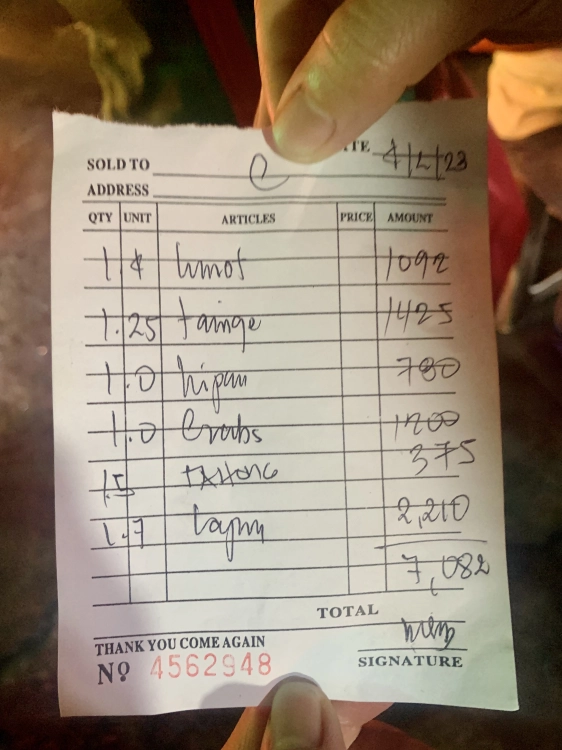 ATE 4/2/23
SOLD TO
ADDRESS
QTY UNIT ARTICLES PRICE AMOUNT
1.4 1092
1.25 tainge 1425
1.0 hipon 780
1.0 Crabs 1200
1.5 375
1.7 2,210
7,082
TOTAL
THANK YOU COME AGAIN
Nº 4562948 SIGNATURE